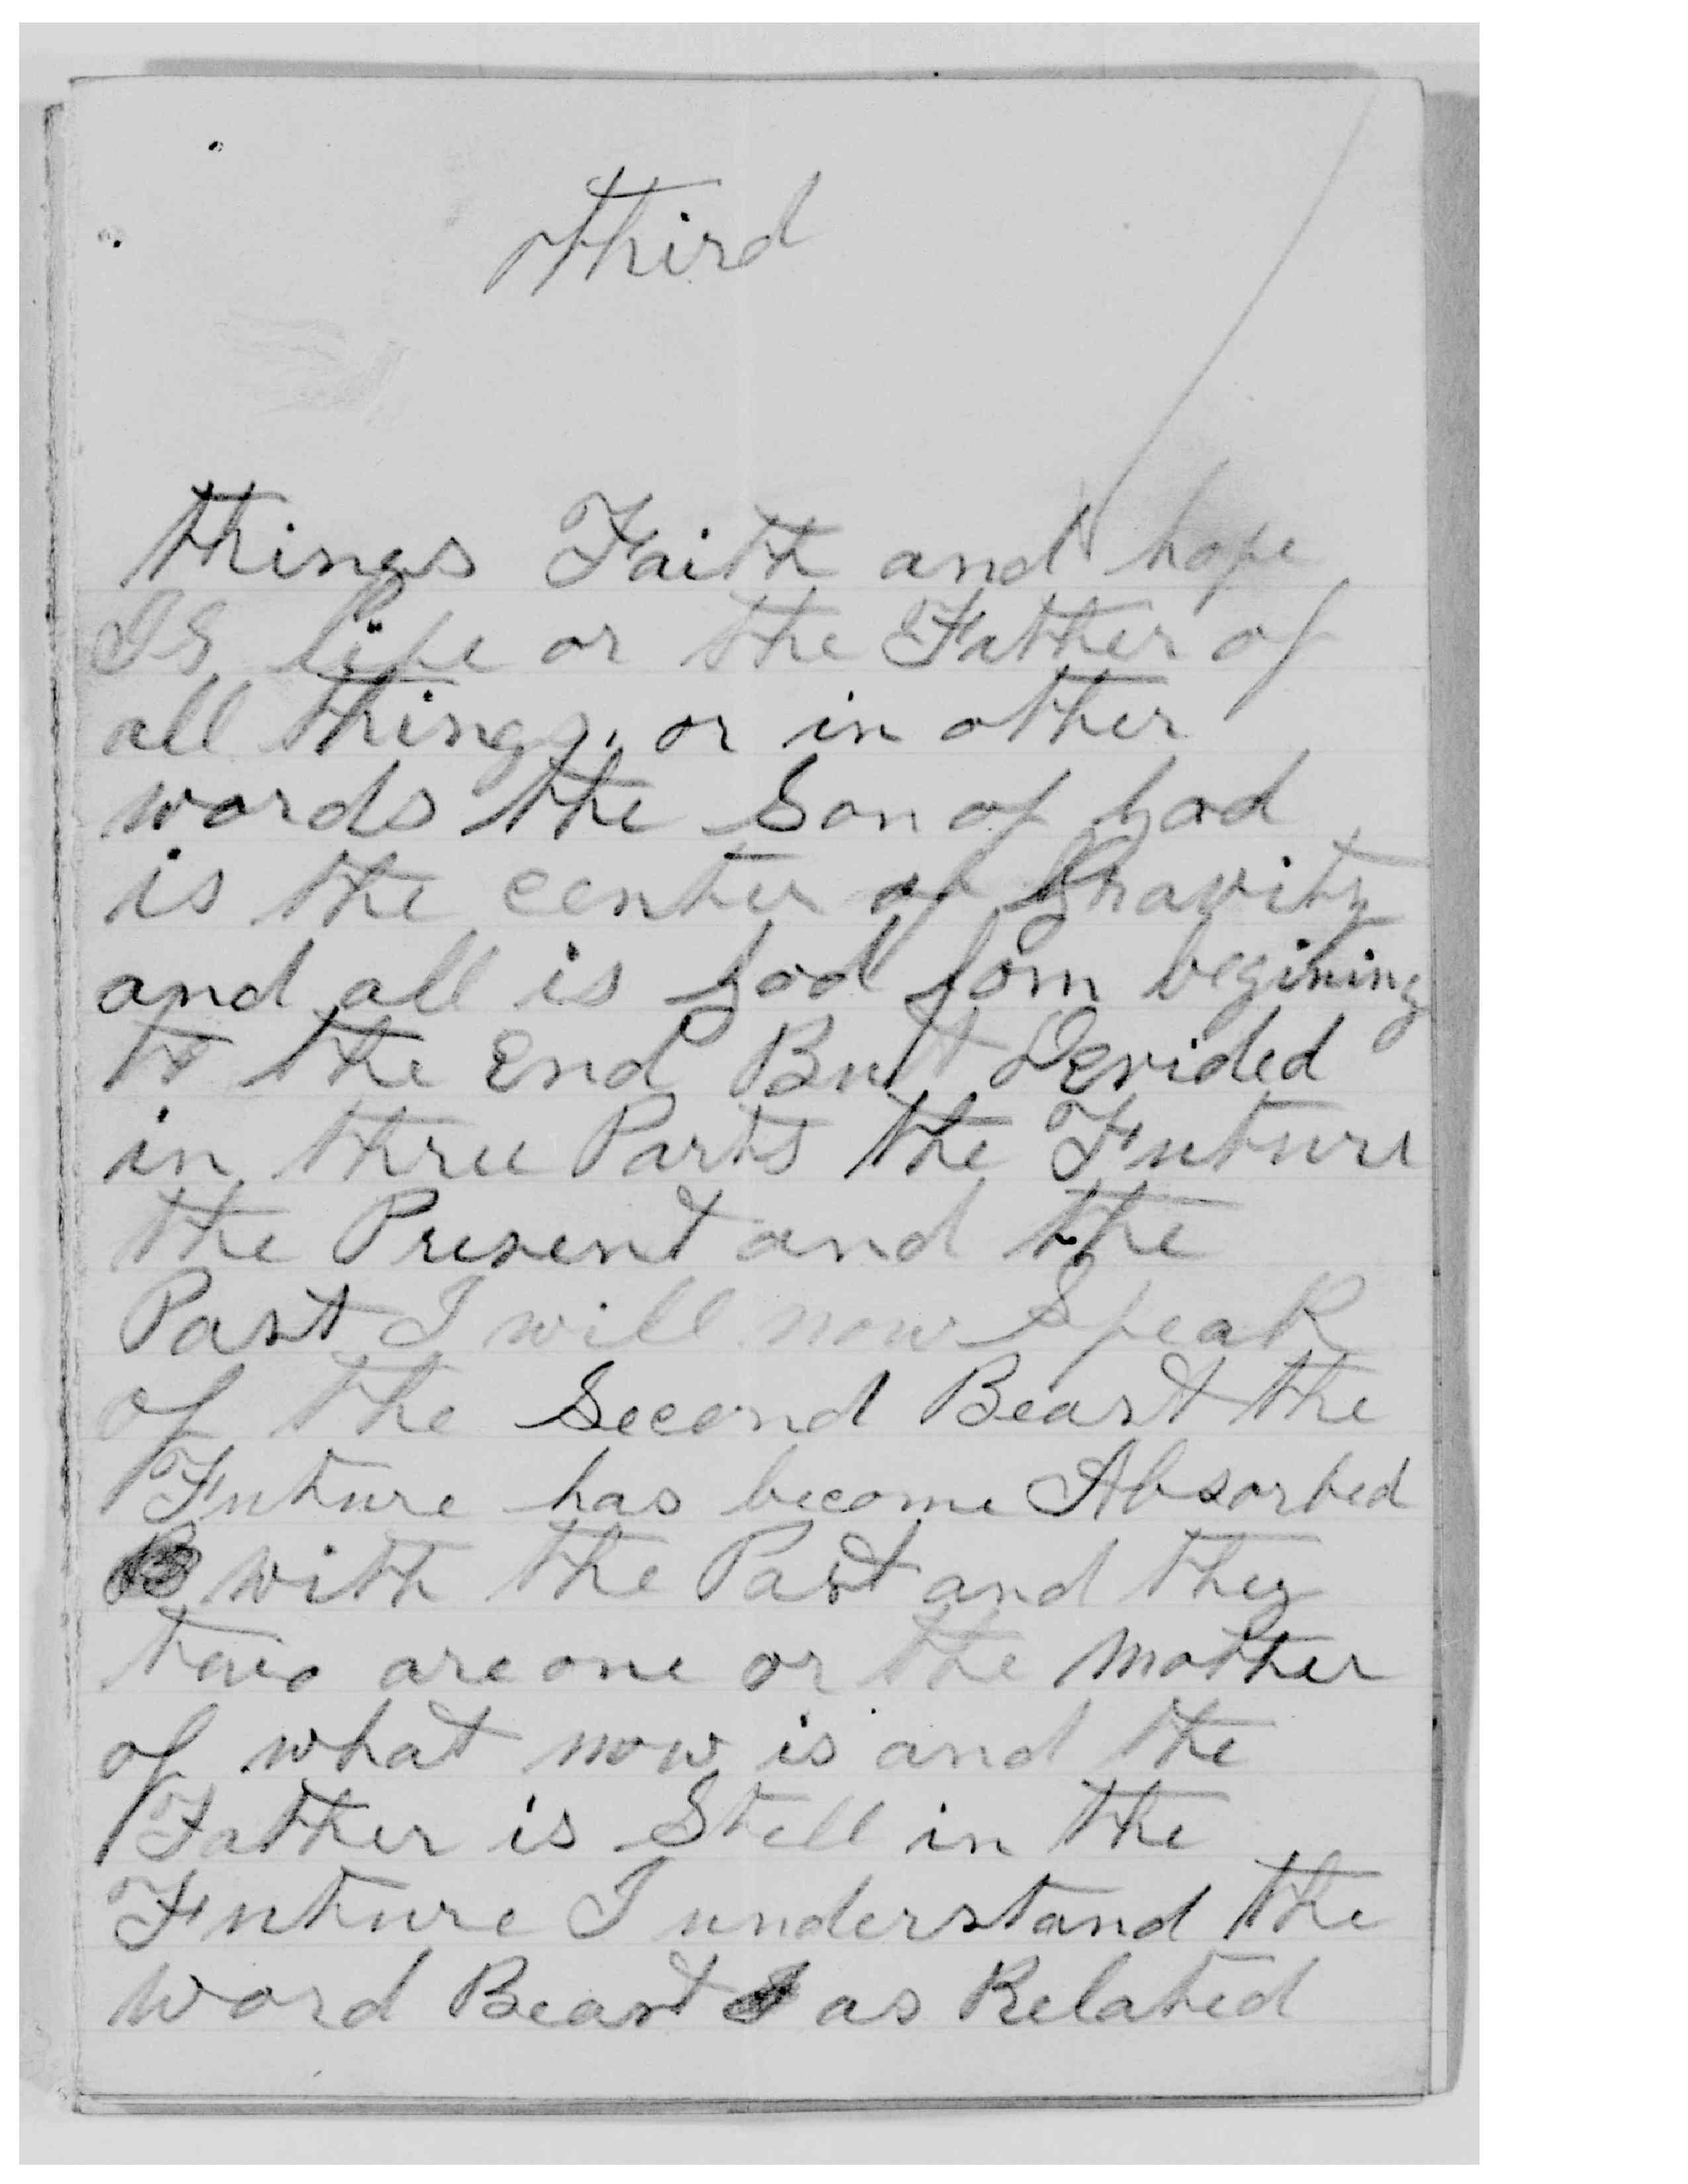 third
things Faith and hope
Is life or the Father of
all things, or in other
words the Son of God
is the center of Gravity
and all is God fom begining
to the End But Devided
in three Parts the Future
the Present and the
Past I will now Speak
of the Second Beast the
Future has become Absorbed
with the Past and they
two are one or the Mother
of what now is and the
Father is Still in the
Future I understand the
word Beast as Related